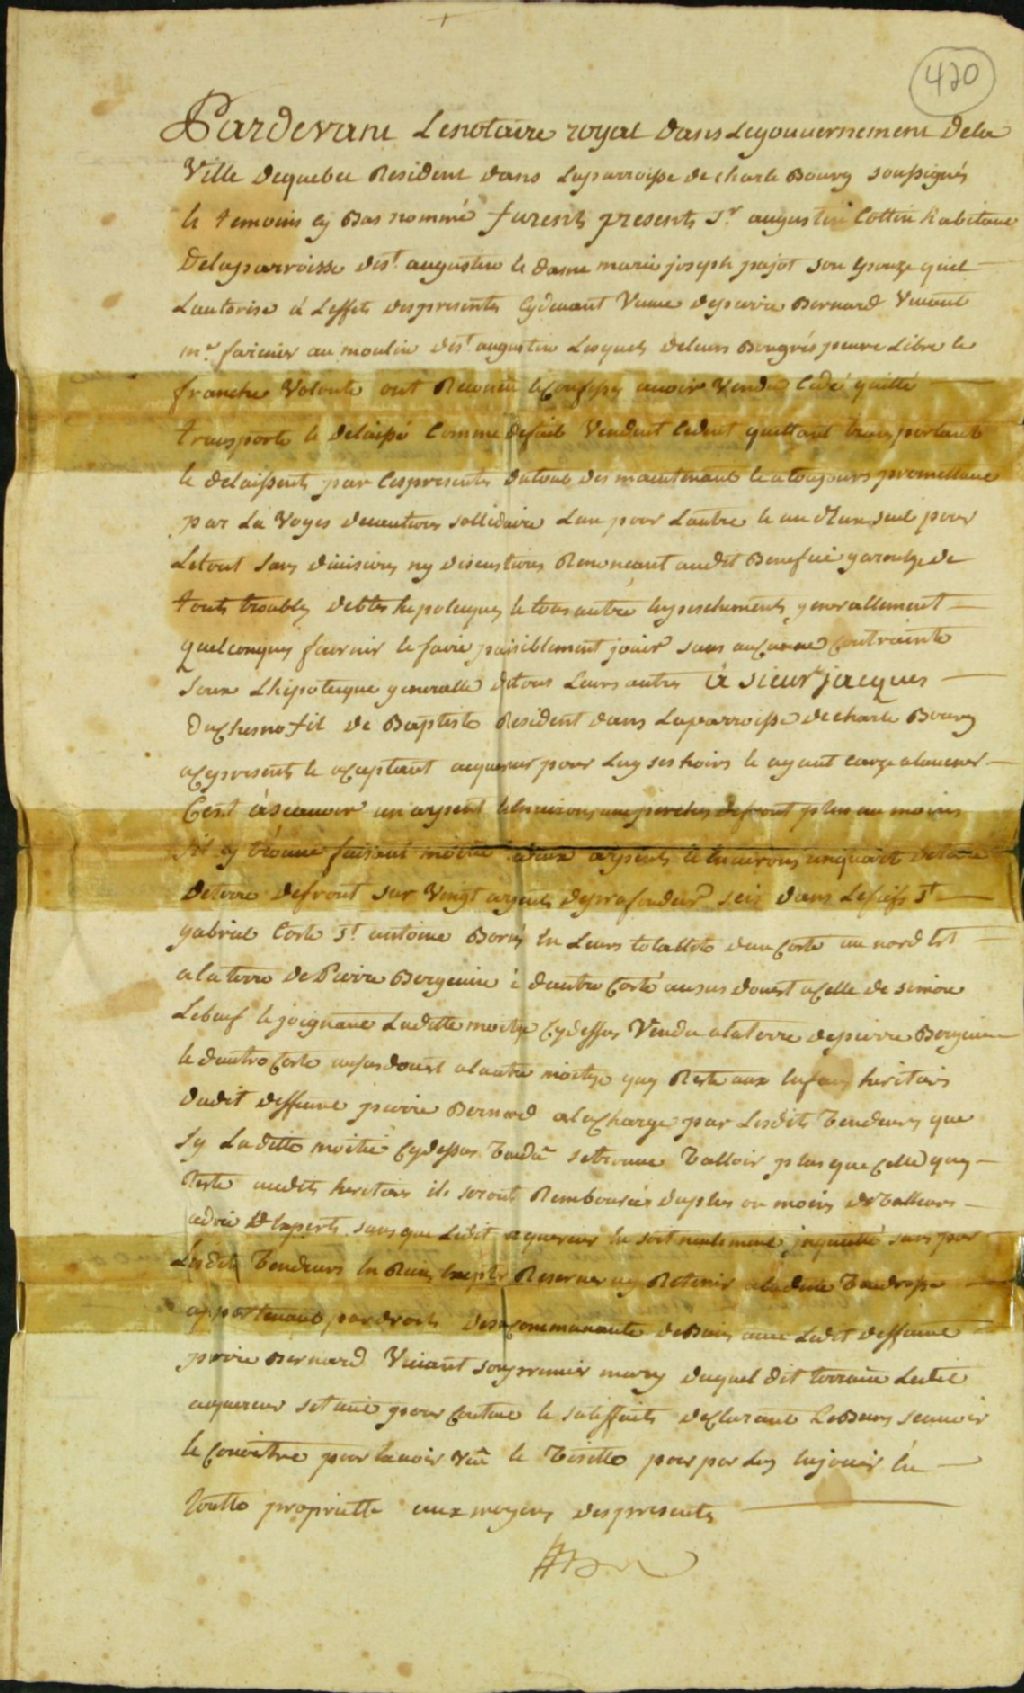 420
Pardevant Lenotaire royal dans Legouvernement dela
Ville dequebec Resident dans Laparroisse de charle Bourg soussignés
le temoins cy Bas nommé furent presents Sr augustin Cottin habitant
Delaparroisse de St augustin le dame marie joseph pajot son Epouze quiel
Lautorise á Leffets despresentes Cydevant Veuve depierre Bernard Vivant
me farinier au moulin de St augustin Lesquels deleurs Bongrés pure Libre le
franche Volonté ont Reconnu le Confessé avoir Vendu Cedé quitté
transporté le delaissé Comme defait Vendent Cedent quittent transportent
le delaissent par Cespresentes dutout des maintenant le a toujours promettant
par La Voyes decaution sollidaire Lun pour Lautre le un dEux seul pour
Letout sans divisions ny discutions Renonçant audit Benefice garantye de
touts troubles debtes hepoteques le tous autre Enpeschements generallement
quelconques fournir le faire paisiblement jouir sans aucune Contrainte
soux Lhipoteque generalle detous Leurs autres á sieur jacques
Duchesne fil de Baptiste Resident dans Laparroisse de charle Bourg
acypresents le acceptant acquereur pour Luy ses hoirs le ayant cauze alavenir
Cest ásçavoir un arpent le Environ une perches defront plus au moins
sil sy trouve faisant moitié adeux arpents le Environ unquart
deterre defront sur Vingt arpents deprofondeur scis dans Lefiefs St
gabriel Coste St antoine Borné En Leurs totallité dun Costé au nord Est
a la terre de Pierre Bergevin é dautre Costé ausus douest acelle de simon
Lebeuf le joignant Ladittte moitye Cydessus Vendu alaterre depierre Bergevin
le dautre Costé ausus douest alautre moitye quy Reste aux Enfans heritiers
dudit deffunt pierre Bernard alacharge par Lesdits Vendeurs que
sy Laditte moitié Cydessus Vendû setrouve Valloir plus que Celle quy
Reste audits heritiers ils seront Remboursée duplus ou moins devalleurs
adire dExperts sans que Ledit aquereur En soit nulement inquieté sans par
Lesdits Vendeurs En Rien Excepter Reserver ny Retenir aladitte Vendresse
appartenant par droits descommunauté deBiens avec Ledit deffunt
pierre Bernard Vivant sonpremier mary duquel dit terrain Ledit
acquereur setient pour Contant le satiffaits declarant LeBien scavoir
le Conoitre pour Lavoir Vûe le Visitté pour par Luy Enjouir En
toutte proprietté aux moyens despresentes